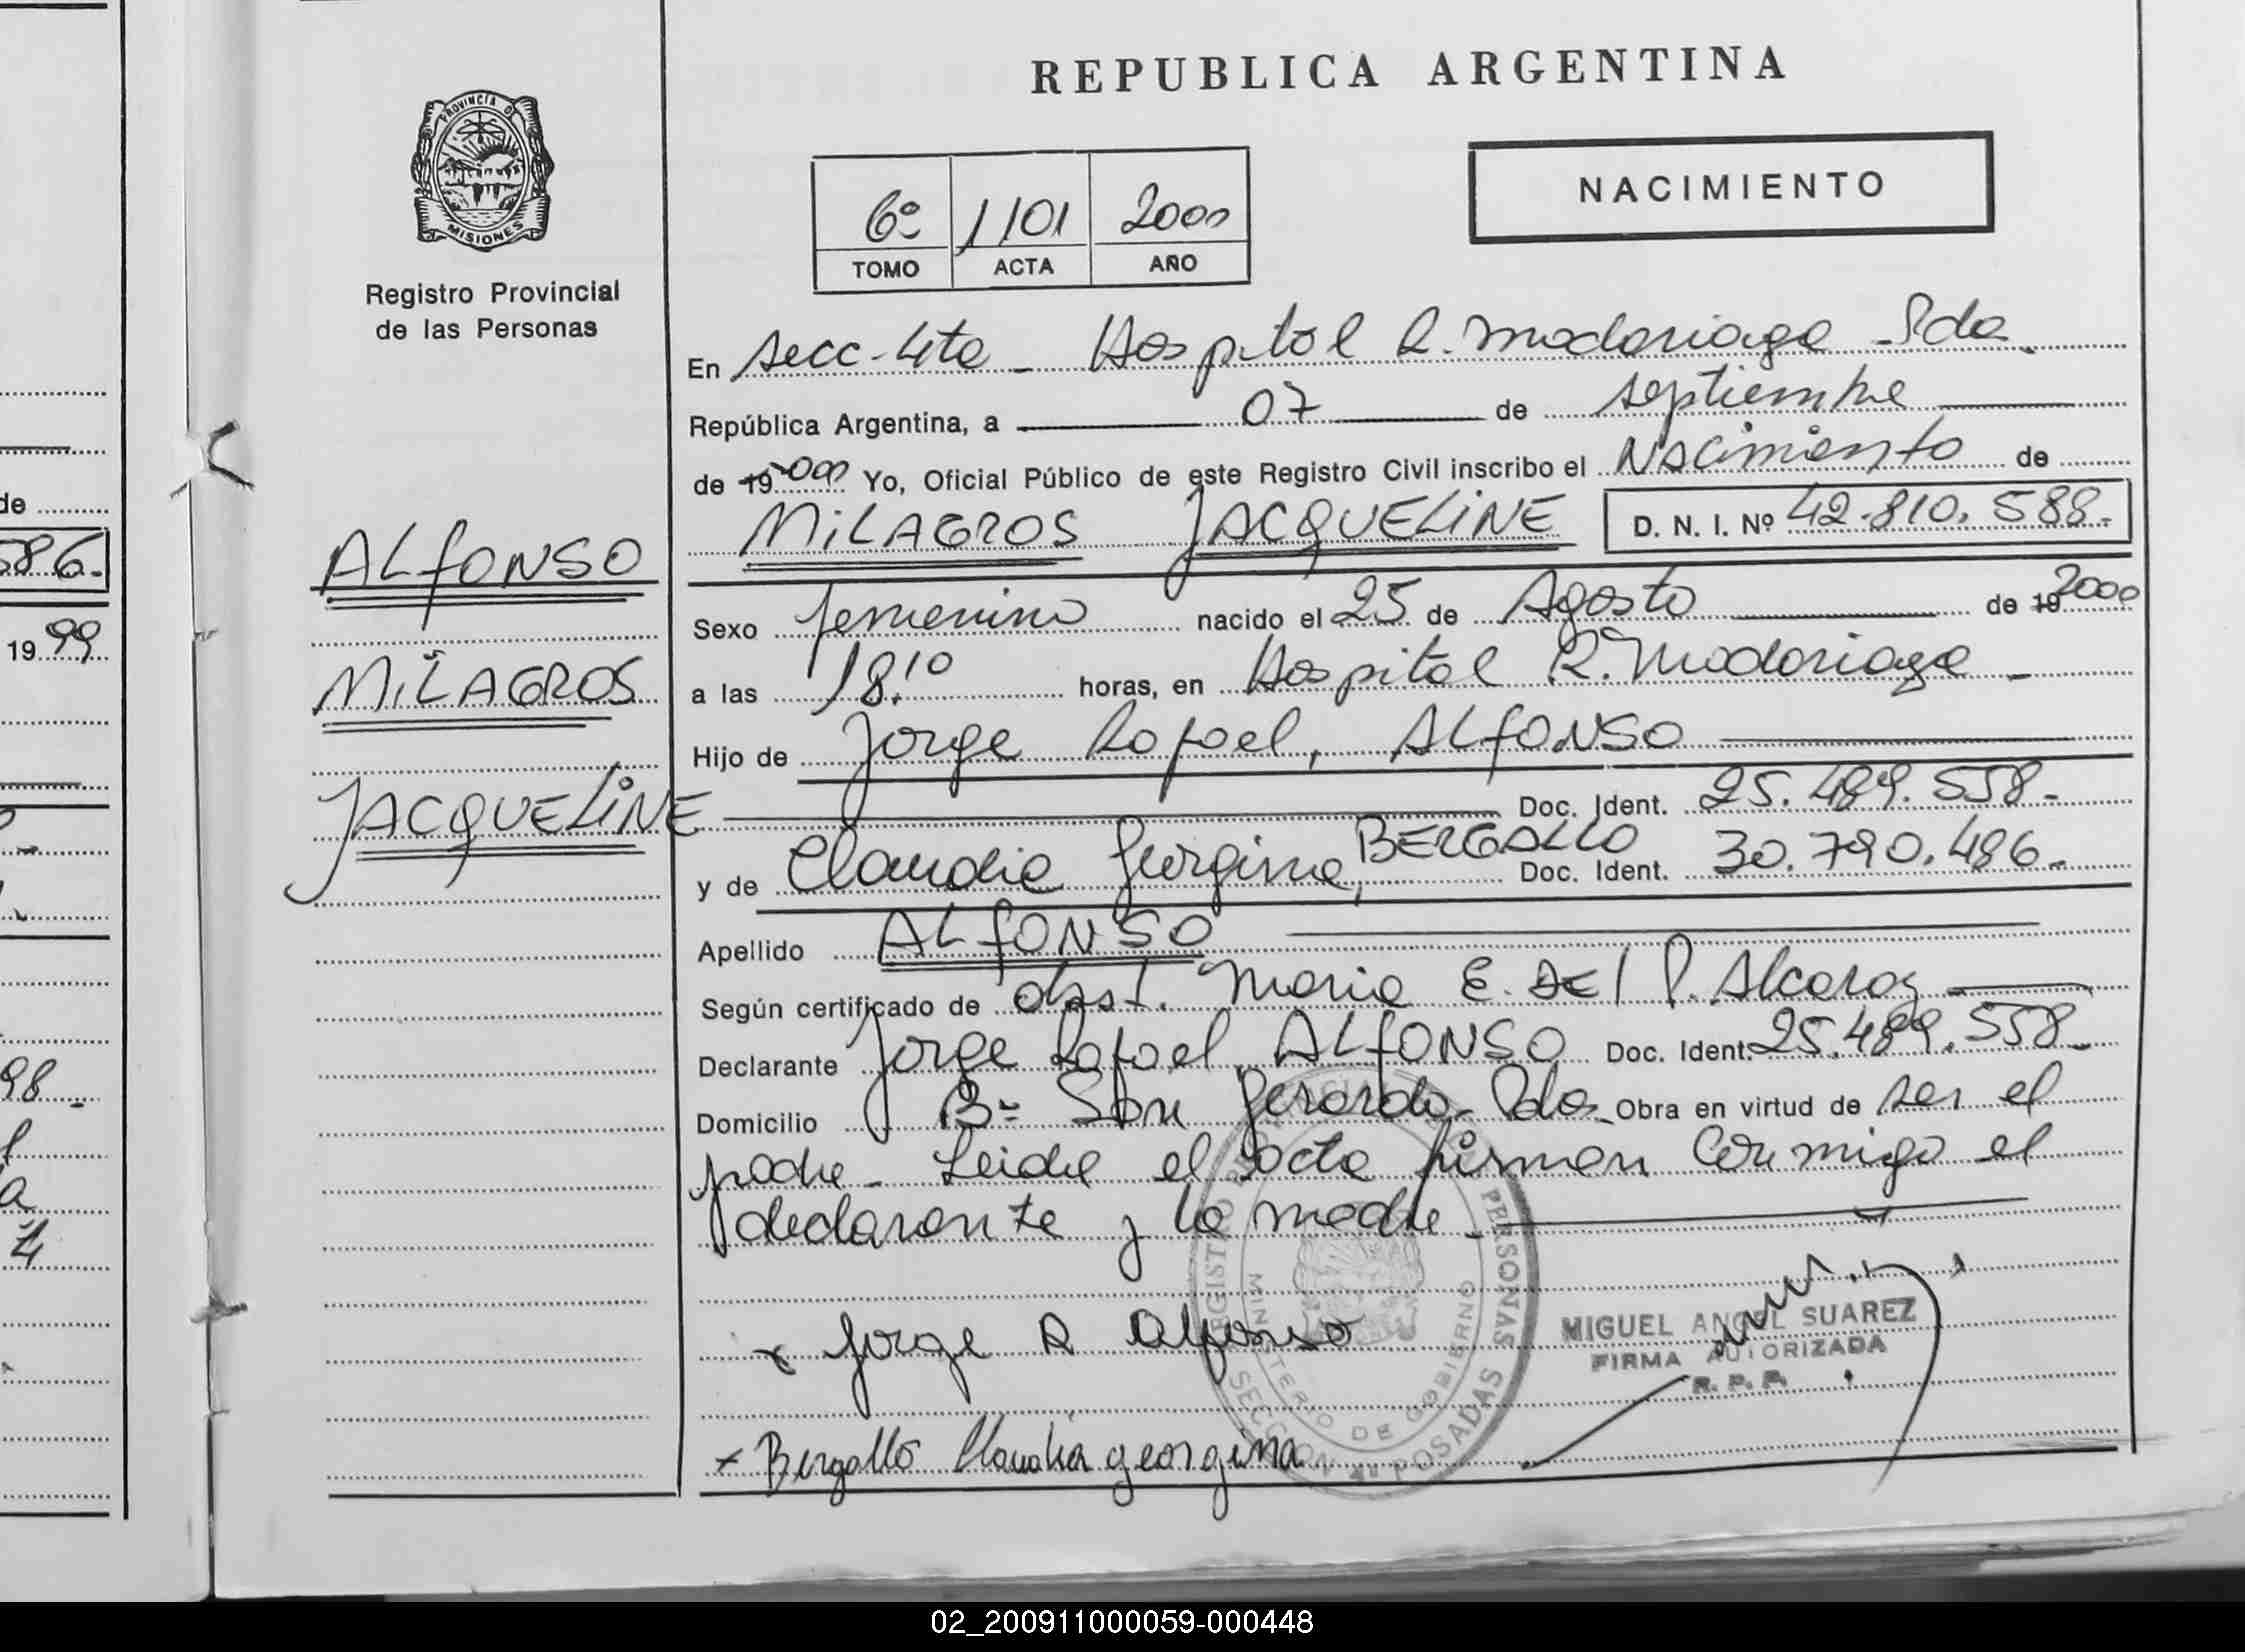 de
586.
1999
98
4
PROVINCIA DE
MISIONES
Registro Provincial
de las Personas
ALFONSO
MILAGROS
JACQUELINE
REPUBLICA ARGENTINA
6º 1101 2000
TOMO ACTA AÑO
NACIMIENTO
En Secc. 4ta - Hospital R. Madariaga - Pdas.
República Argentina, a 07 de septiembre
de 19 2000 Yo, Oficial Público de este Registro Civil inscribo el Nacimiento de
MILAGROS JACQUELINE D. N. I. Nº 42.810.588.-
Sexo femenino nacido el 25 de Agosto de 19 2000
a las 18.10 horas, en Hospital R. Madariaga -
Hijo de Jorge Rafael, ALFONSO
Doc. Ident. 25.489.558.-
y de Claudia Gergina, BERGALLO Doc. Ident. 30.790.486.-
Apellido ALFONSO
Según certificado de obst. Maria E. DEl P. Alcaraz
Declarante Jorge Rafael ALFONSO Doc. Ident. 25.489.558.-
Domicilio Bº San Gerardo - Pdas. Obra en virtud de ser el
padre - Leida el acta firman conmigo el
declarante y la madre -
x Jorge R Alfonso
MIGUEL ANGEL SUAREZ
FIRMA AUTORIZADA
R. P. P.
x Bergallo Claudia georgina
REGISTRO PROVINCIAL DE LAS PERSONAS
MINISTERIO DE GOBIERNO
SECCION 4ª POSADAS
02_200911000059-000448